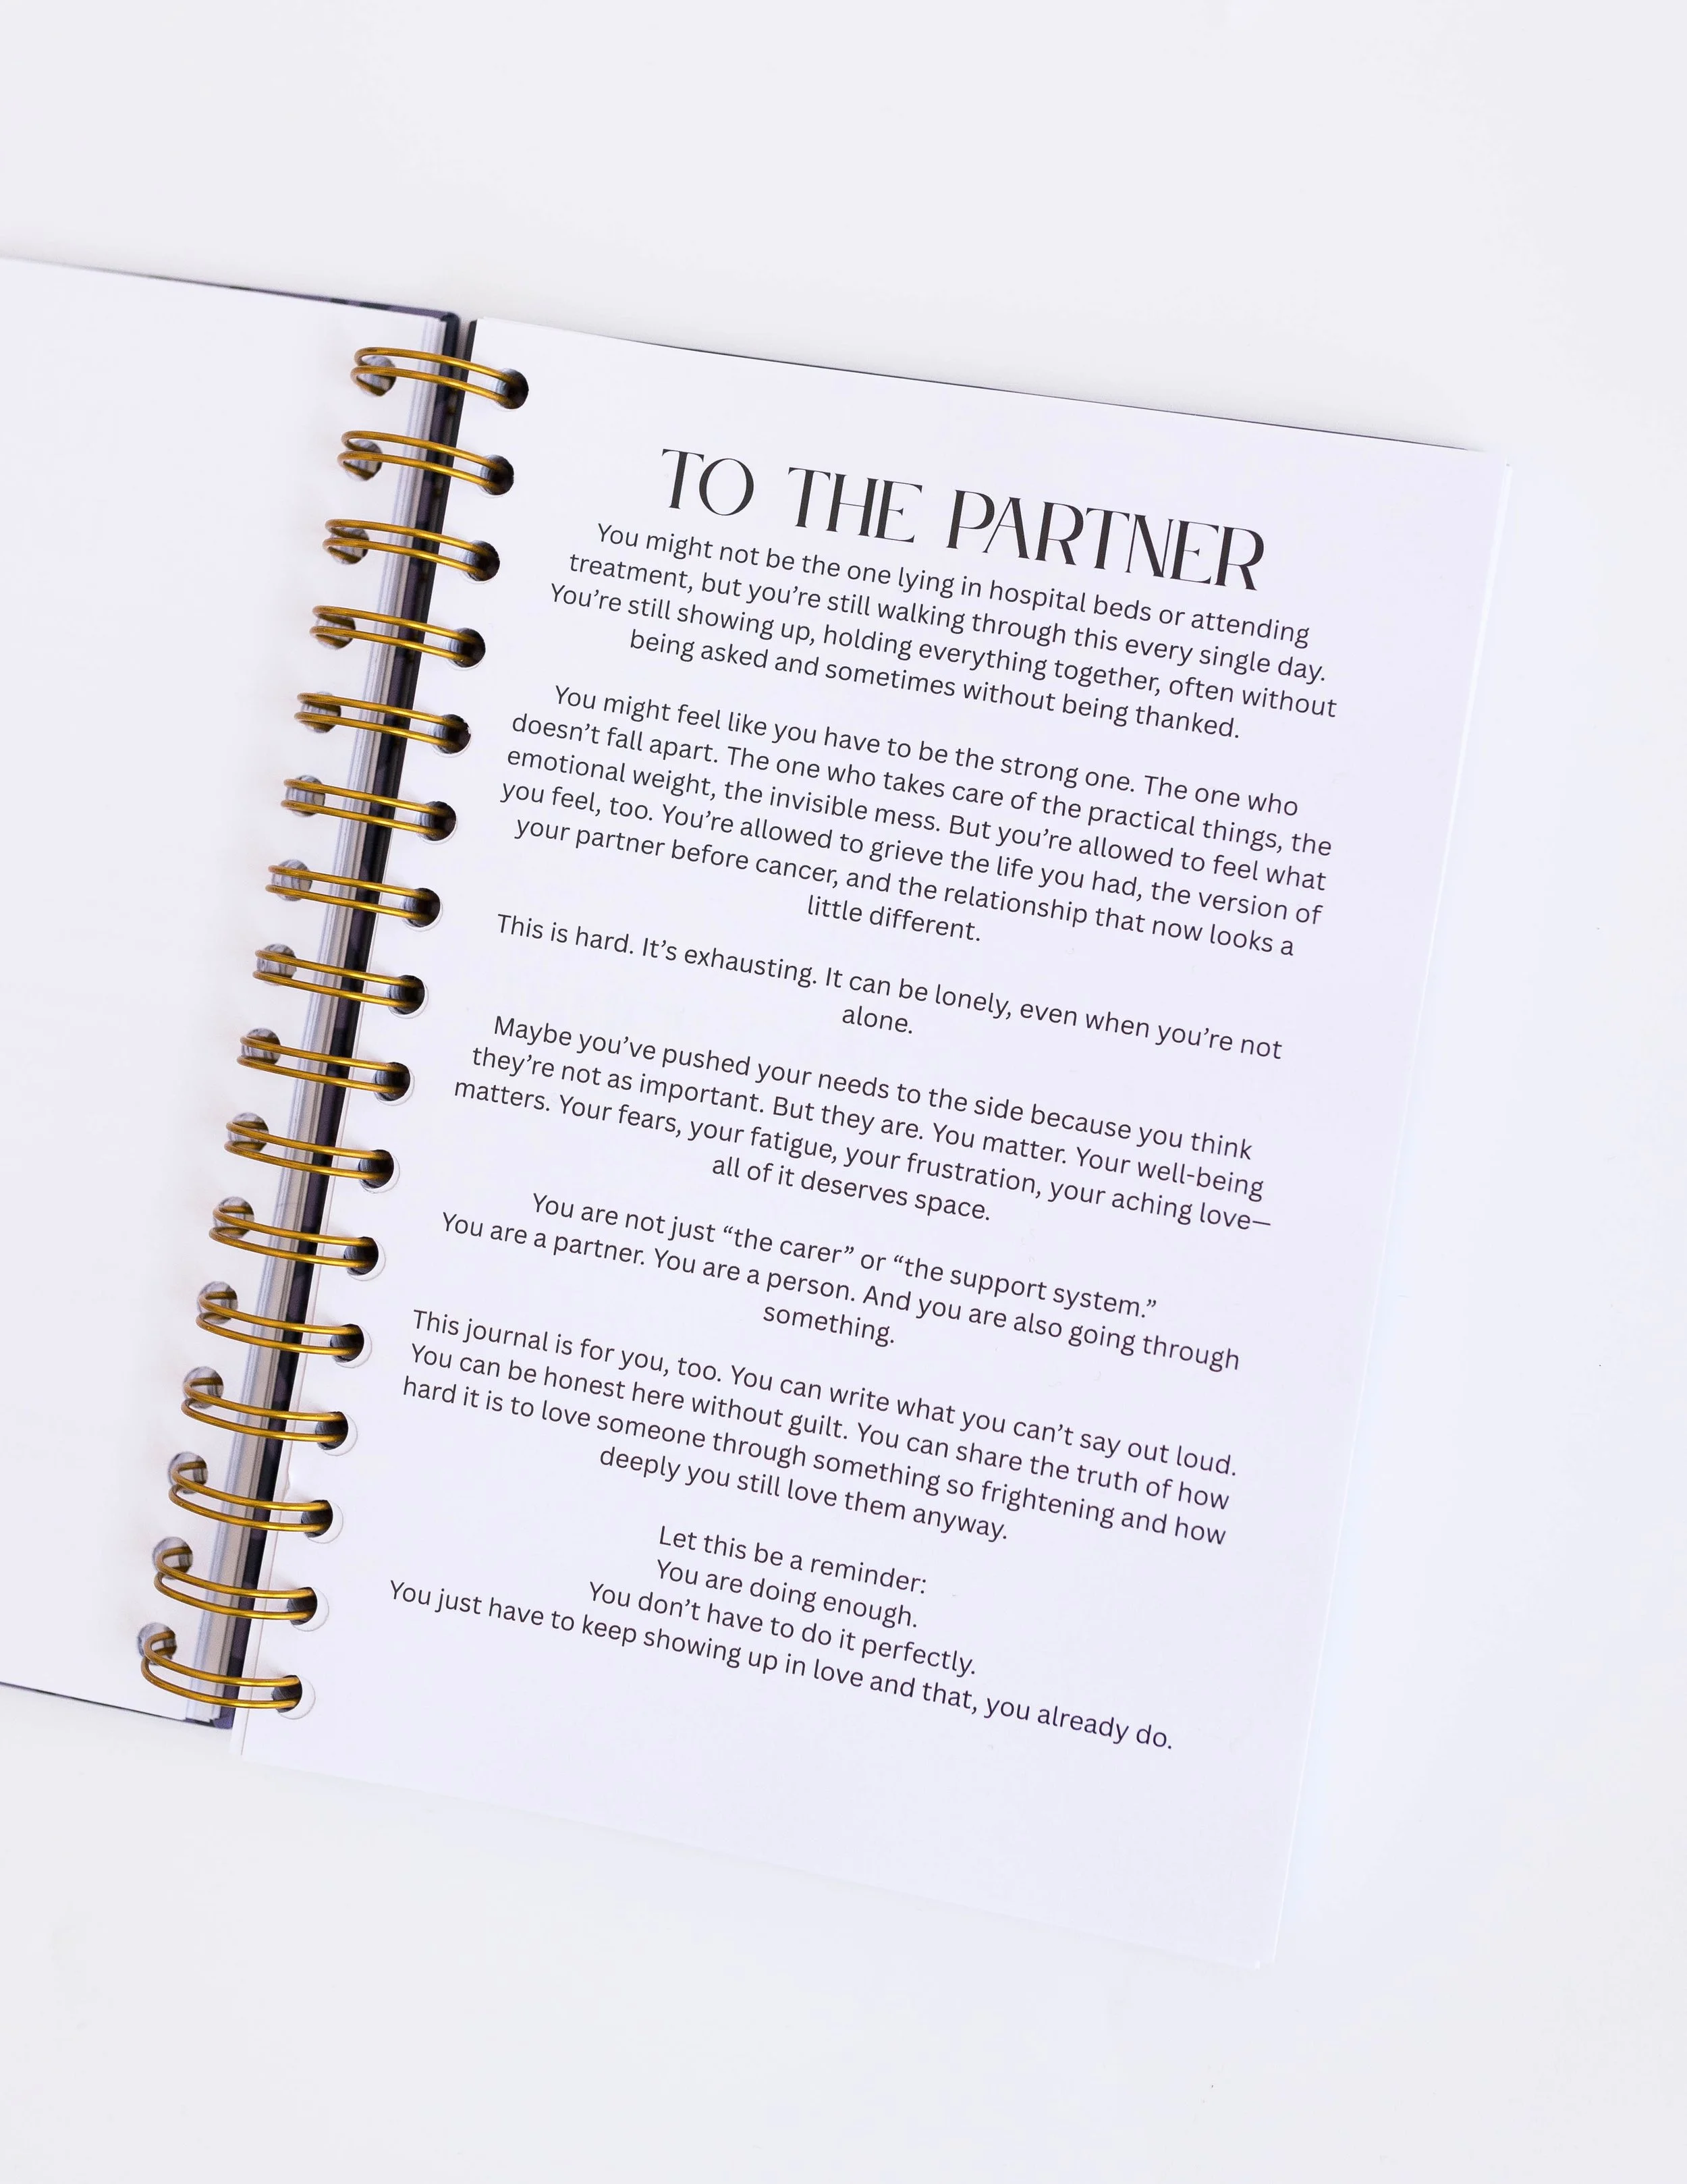 TO THE PARTNER
You might not be the one lying in hospital beds or attending
treatment, but you’re still walking through this every single day.
You’re still showing up, holding everything together, often without
being asked and sometimes without being thanked.
You might feel like you have to be the strong one. The one who
doesn’t fall apart. The one who takes care of the practical things, the
emotional weight, the invisible mess. But you’re allowed to feel what
you feel, too. You’re allowed to grieve the life you had, the version of
your partner before cancer, and the relationship that now looks a
little different.
This is hard. It’s exhausting. It can be lonely, even when you’re not
alone.
Maybe you’ve pushed your needs to the side because you think
they’re not as important. But they are. You matter. Your well-being
matters. Your fears, your fatigue, your frustration, your aching love—
all of it deserves space.
You are not just “the carer” or “the support system.”
You are a partner. You are a person. And you are also going through
something.
This journal is for you, too. You can write what you can’t say out loud.
You can be honest here without guilt. You can share the truth of how
hard it is to love someone through something so frightening and how
deeply you still love them anyway.
Let this be a reminder:
You are doing enough.
You don’t have to do it perfectly.
You just have to keep showing up in love and that, you already do.